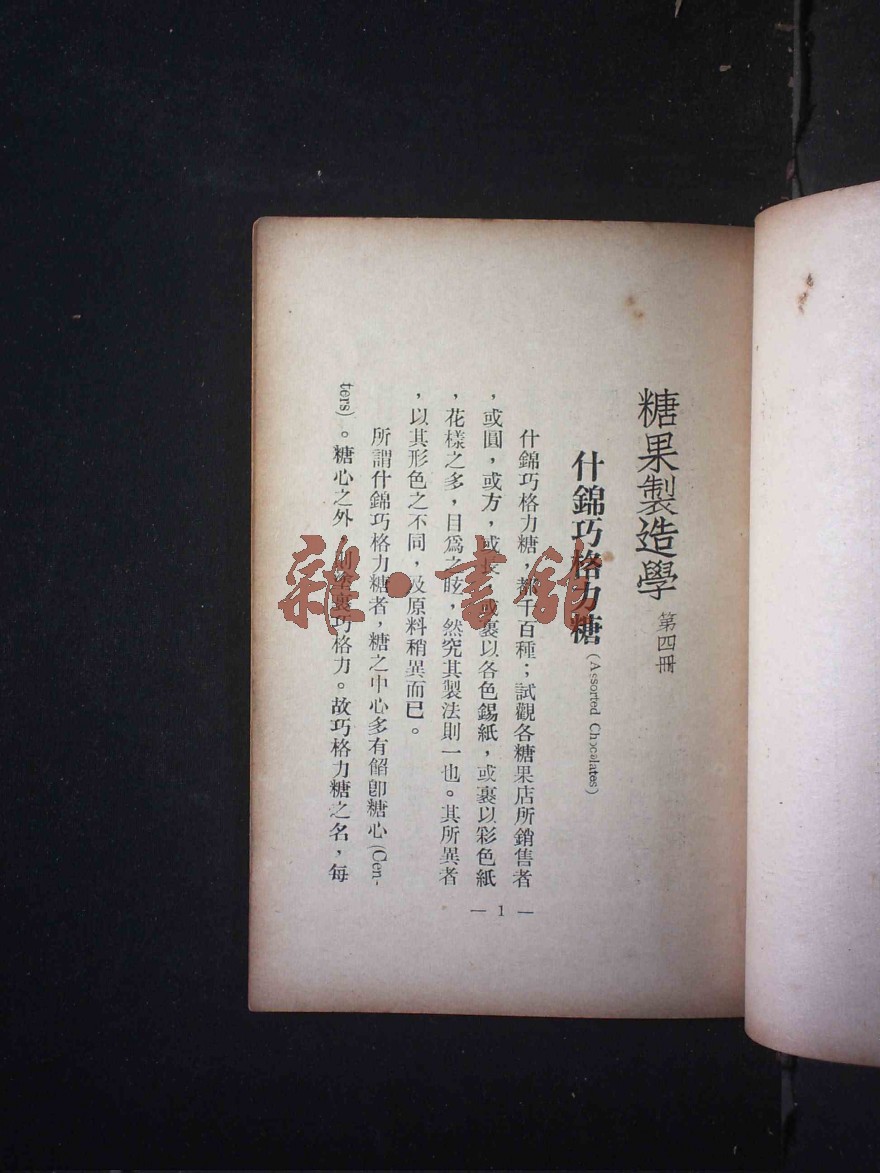 糖果製造學 第四冊
什錦巧格力糖(Assorted Chocolates)
什錦巧格力糖，都千百種；試觀各糖果店所銷售者
，或圓，或方，或長，或裹以各色錫紙，或裹以彩色紙
，花樣之多，目爲之眩，然究其製法則一也。其所異者
，以其形色之不同，及原料稍異而已。
所謂什錦巧格力糖者，糖之中心多有餡卽糖心(Cen-
ters)。糖心之外，則塗裹巧格力。故巧格力糖之名，每
— 1 —
雜·書館